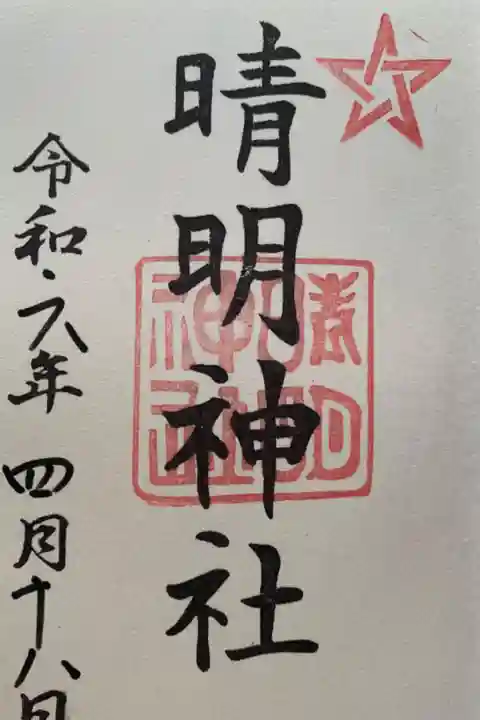 晴明神社
晴明
神社
令和六年 四月十八日